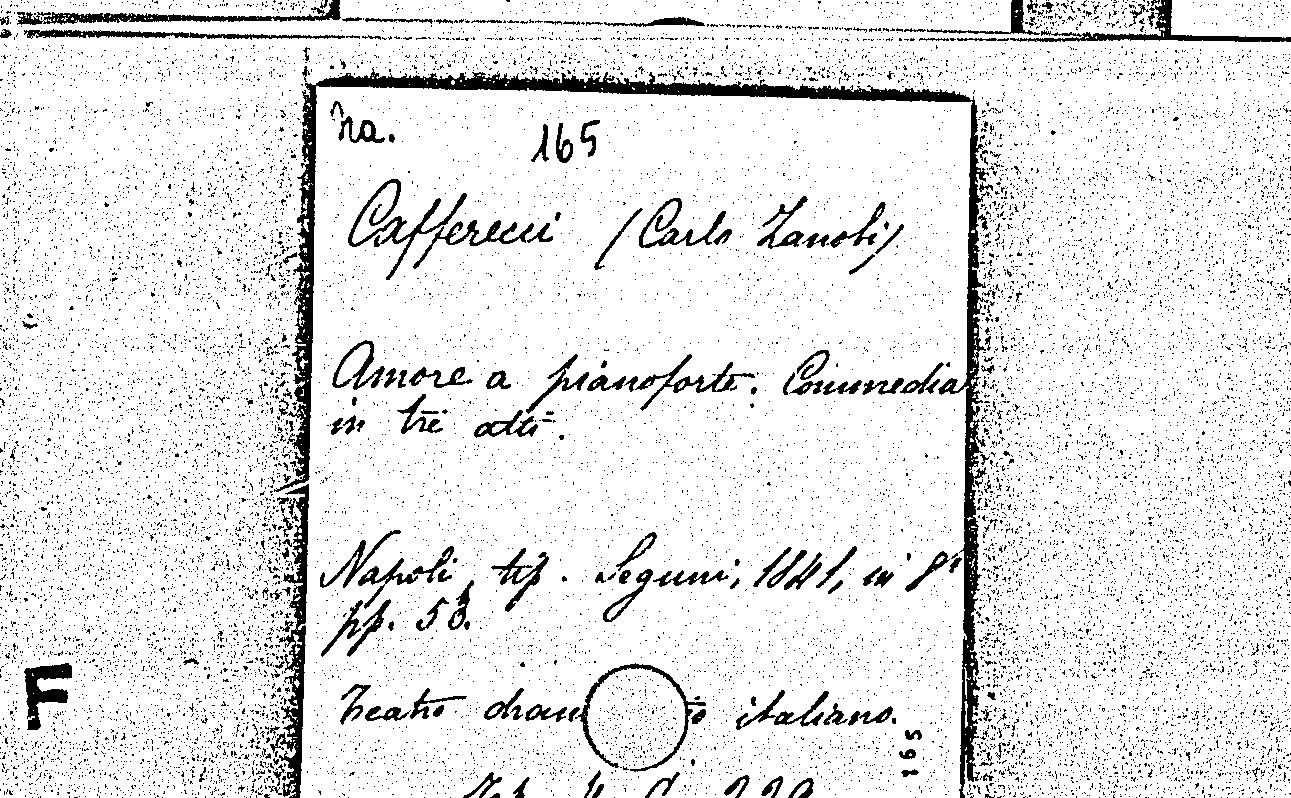 Na. 165
Cafferecci (Carlo Zanobi)
Amore a pianoforte. Commedia
in tre atti.
Napoli, tip. Seguin, 1841, in 8º
pp. 53.
Teatro dram to italiano.
165
F